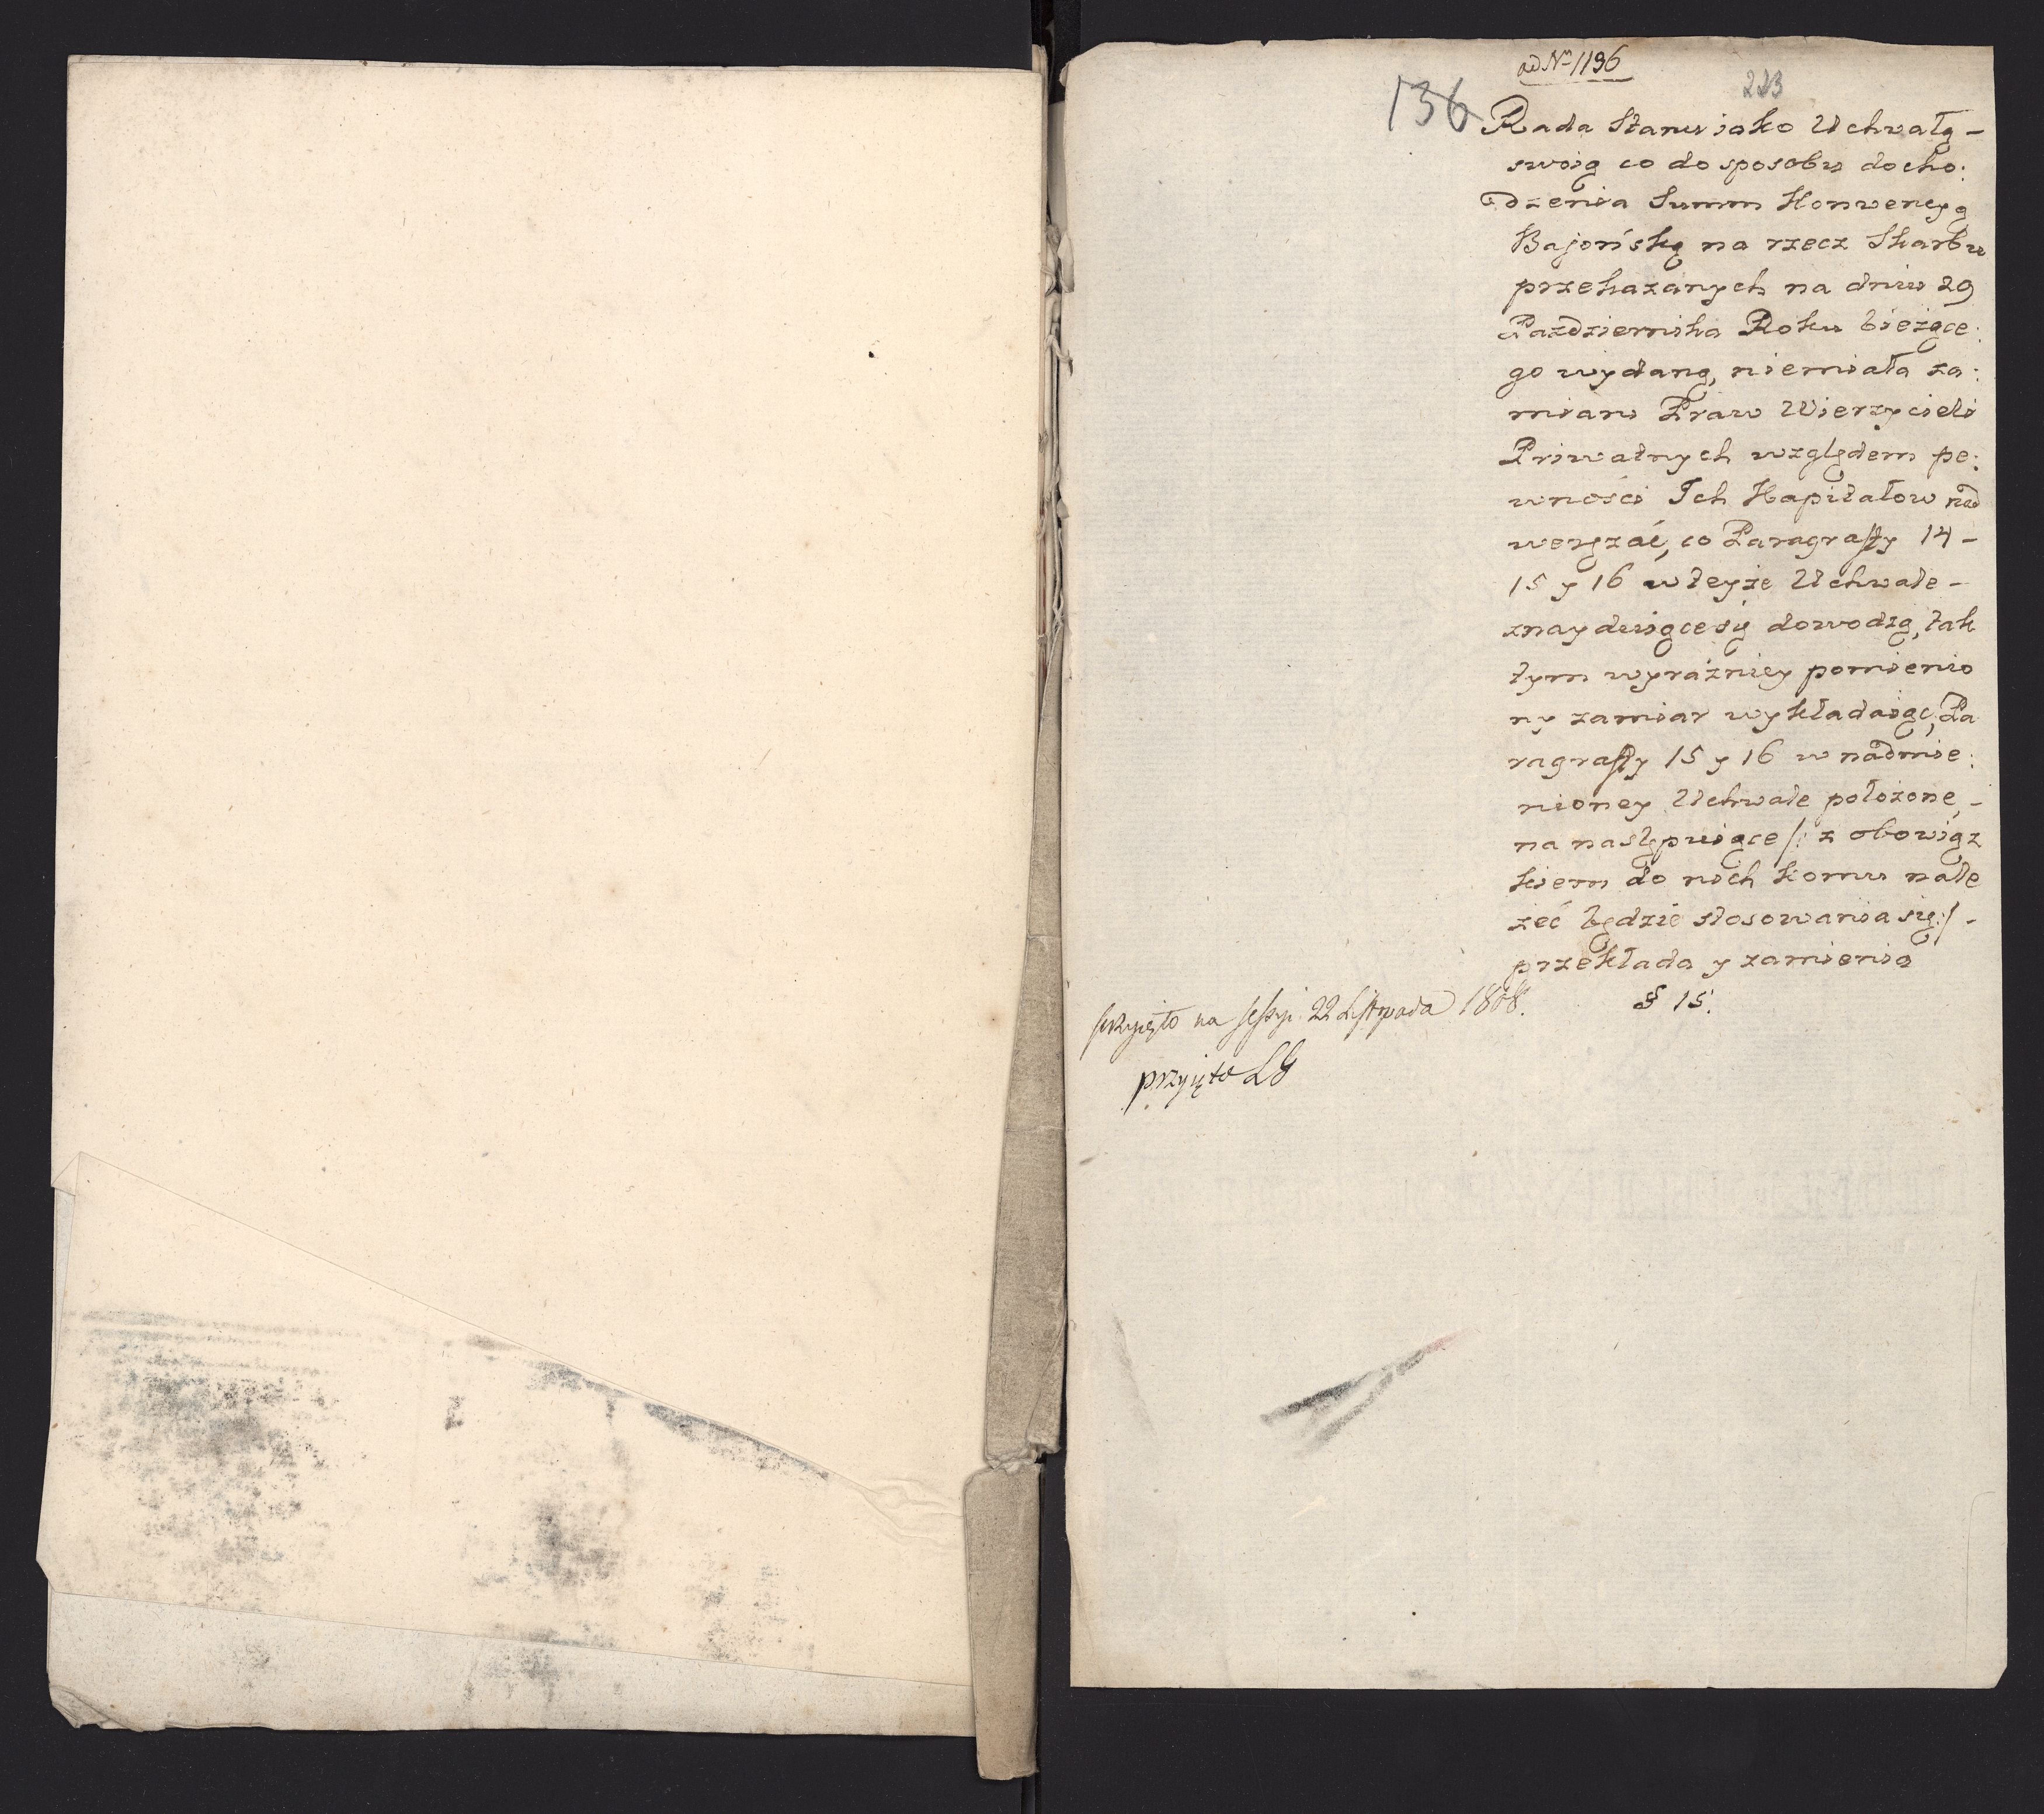 ad Nm 1196
136
223
Rada Stanu iako Uchwałę –
swoią co do sposobu docho:
dzenia Summ Konwencyą
Bajońską na rzecz Skarbu
przekazanych na dniu 29
Pazdziernika Roku bieżące:
go wydaną, niemiała za:
miaru Praw Wierzycieli
Priwatnych względem pe:
wności Ich Kapitałow nad
weryżać, co Paragraffy 14 –
15 y 16 w teyże Uchwale –
znayduiące się dowodzą, tak
tym wyraźniey pomienio
ny zamiar wykładaiąc, Pa
ragraffy 15 y 16 w nadmie:
nioney Uchwale położone, –
na następuiące /: z obowiąz
kiem do nich komu nale
żeć będzie stosowania się :/ –
przekłada y zamienia
§ 15.
przyięto na sessyi 22 Listopada 1808.
przyięto LG